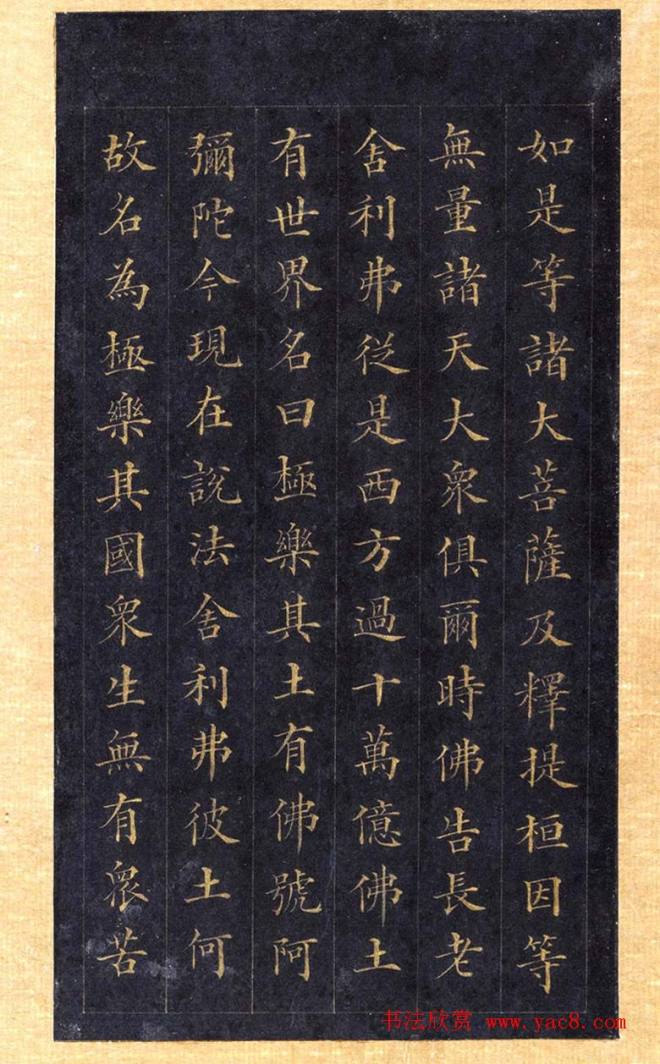 如是等諸大菩薩及釋提桓因等
無量諸天大眾俱爾時佛告長老
舍利弗從是西方過十萬億佛土
有世界名曰極樂其土有佛號阿
彌陀今現在說法舍利弗彼土何
故名為極樂其國眾生無有眾苦
书法欣赏 www.yac8.com